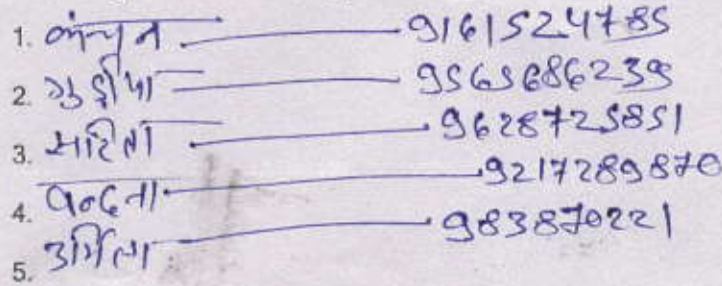 1. कंचन 9161524785
2. गुड़ीया 9565686239
3. सरिता 9628725851
4. वन्दना 9217289870
5. उर्मिला 983870221